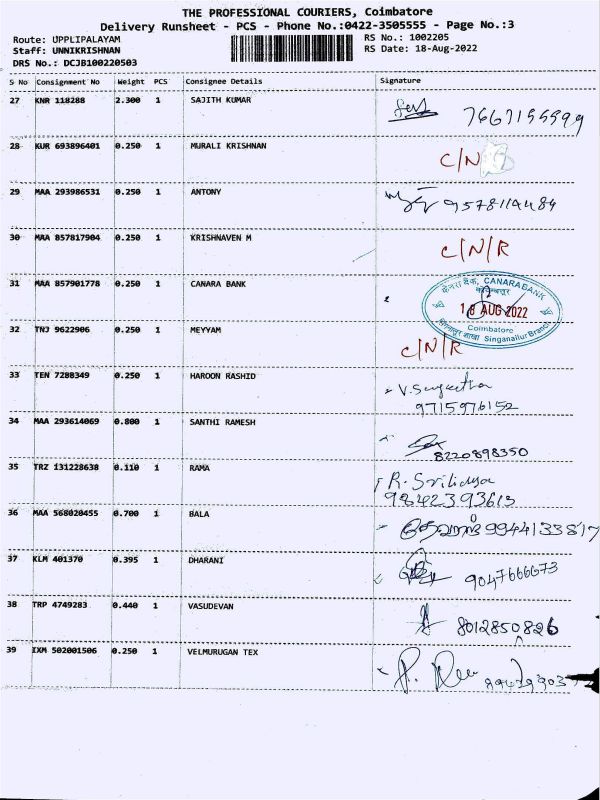 THE PROFESSIONAL COURIERS, Coimbatore
Delivery Runsheet - PCS - Phone No.:0422-3505555 - Page No.:3
Route: UPPLIPALAYAM RS No.: 1002205
Staff: UNNIKRISHNAN RS Date: 18-Aug-2022
DRS No.: DCJB100220503
S No Consignment No Weight PCS Consignee Details Signature
27 KNR 118288 2.300 1 SAJITH KUMAR
28 KUR 693896401 0.250 1 MURALI KRISHNAN C/N
29 MAA 293986531 0.250 1 ANTONY
30 MAA 857817904 0.250 1 KRISHNAVEN M C/N/R
31 MAA 857901778 0.250 1 CANARA BANK
केनरा बैंक, CANARA BANK
18 AUG 2022
Coimbatore
Singanallur Branch
32 TNJ 9622906 0.250 1 MEYYAM C/N/R
33 TEN 7288349 0.250 1 HAROON RASHID
9715976152
34 MAA 293614069 0.800 1 SANTHI RAMESH
8220898350
35 TRZ 131228638 0.110 1 RAMA R.
9842393613
36 MAA 568020455 0.700 1 BALA 9944133817
37 KLM 401370 0.395 1 DHARANI 9047666673
38 TRP 4749283 0.440 1 VASUDEVAN 8012850826
39 IXM 502001506 0.250 1 VELMURUGAN TEX